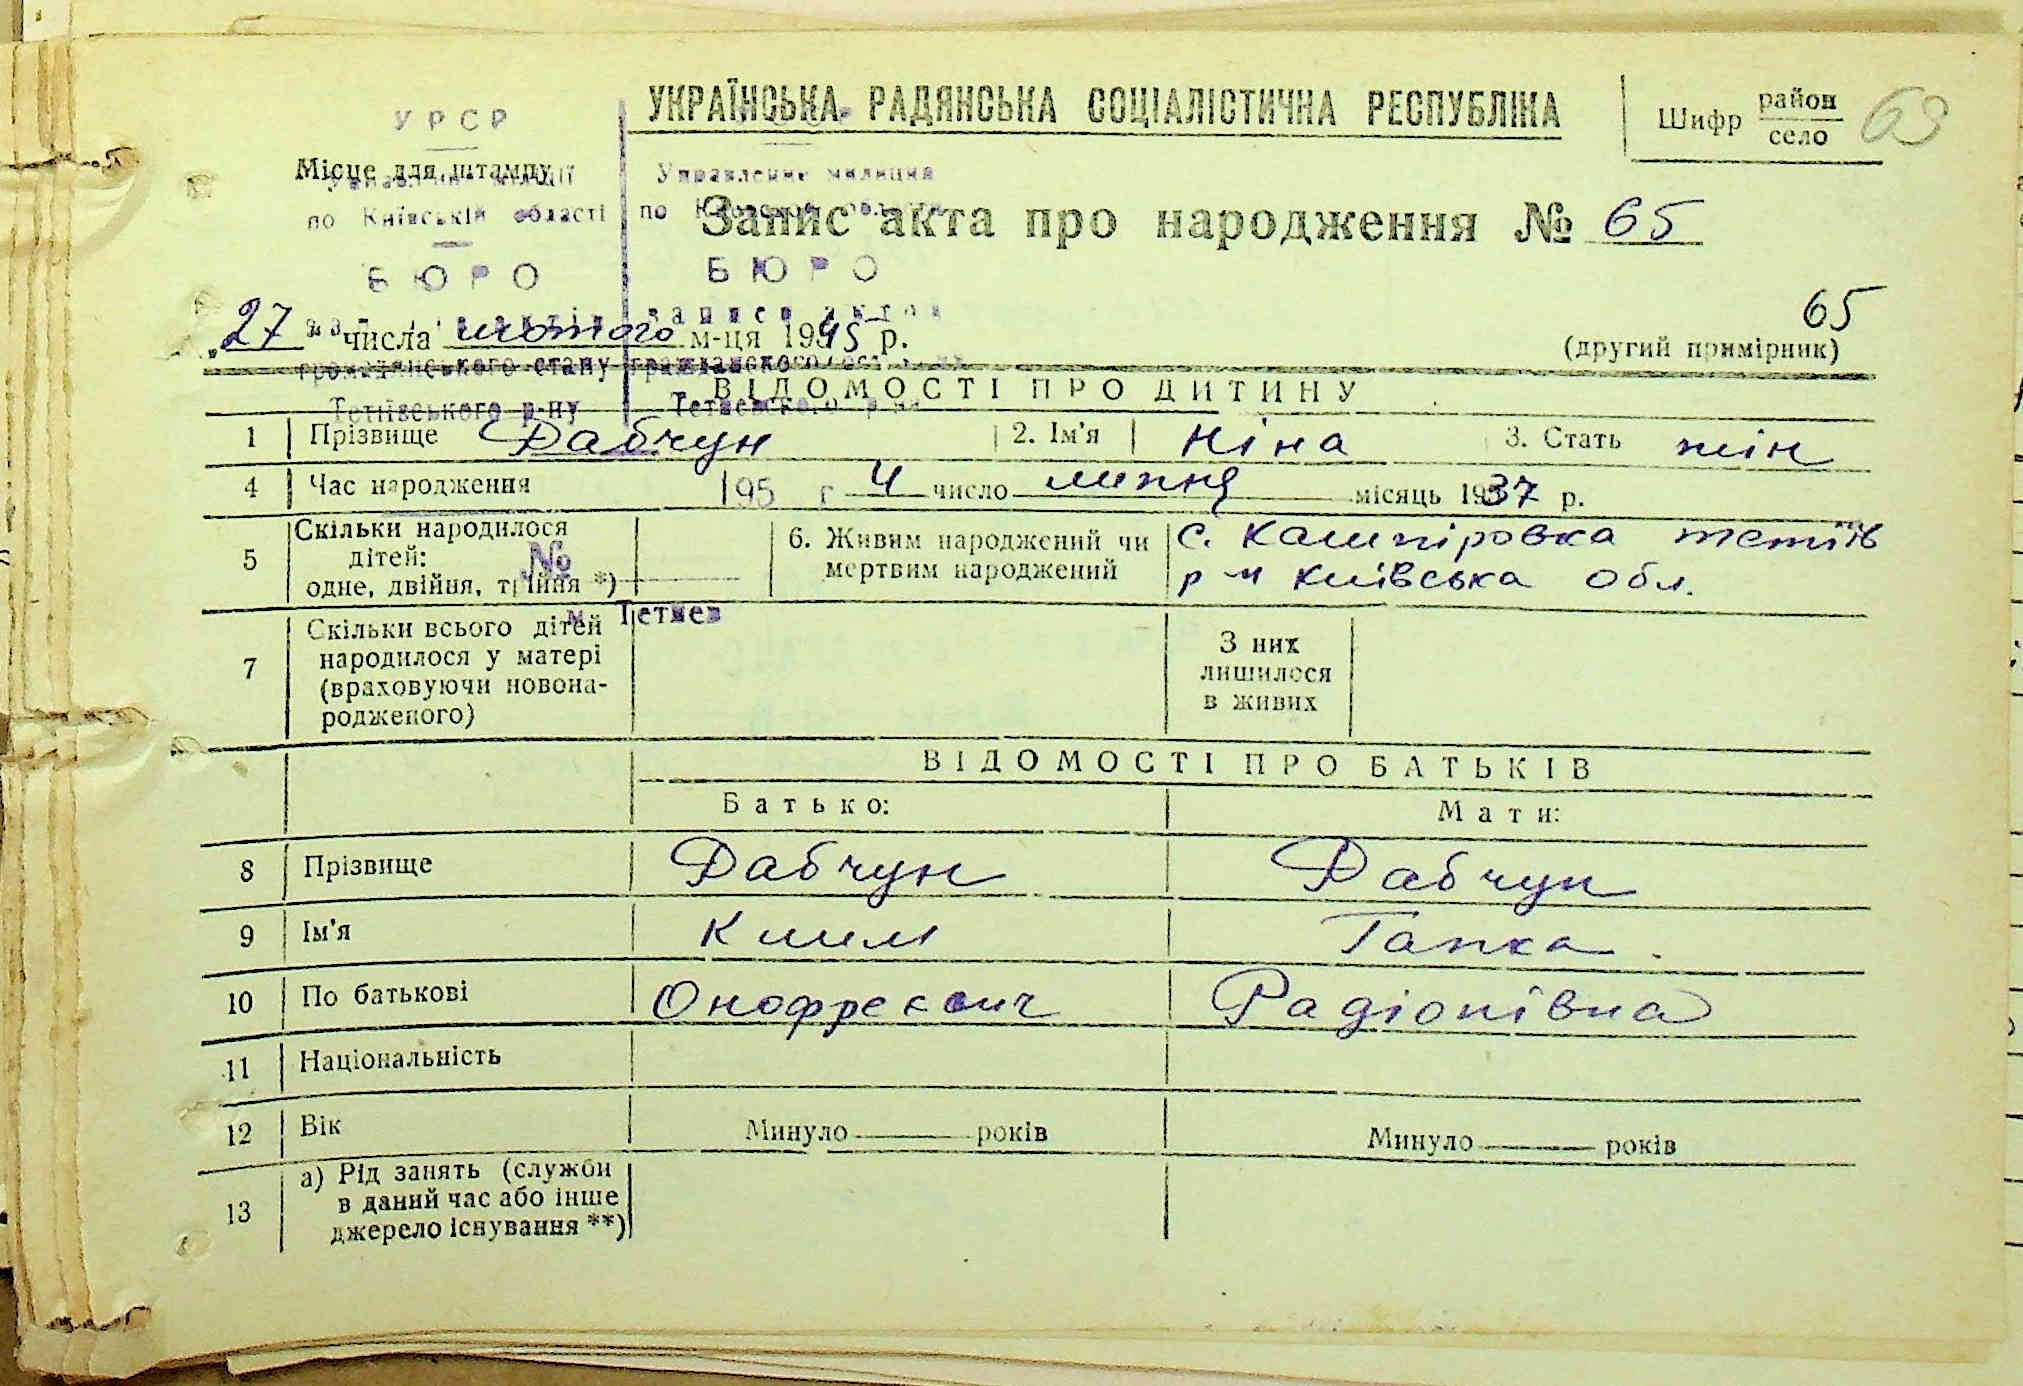 УКРАЇНСЬКА РАДЯНСЬКА СОЦІАЛІСТИЧНА РЕСПУБЛІКА
Шифр район
село 69
УРСР
Місце для штампу
Управление милиции
по Київській області по Киевской области
Запис акта про народження № 65
БЮРО БЮРО
65
27 " числа лютого м-ця 1945 р.
(другий примірник)
громадянського стану гражданского
ВІДОМОСТІ ПРО ДИТИНУ
Тетіївського р-ну Тетиевского р-на
1 Прізвище Дабчун 2. Ім'я Ніна 3. Стать жін
4 Час народження 195 г 4 число липня місяць 1937 р.
5 Скільки народилося дітей: одне, двійня, трійня *)
№
6. Живим народжений чи мертвим народжений
с. Кашпіровка тетіїв
р-н Київська обл.
м. Тетиев
7 Скільки всього дітей народилося у матері (враховуючи новонародженого)
З них лишилося в живих
ВІДОМОСТІ ПРО БАТЬКІВ
Батько: Мати:
8 Прізвище Дабчун Дабчун
9 Ім'я Клим Гапка
10 По батькові Онофреєвич Радіонівна
11 Національність
12 Вік Минуло років Минуло років
13 а) Рід занять (служби
в даний час або інше
джерело існування **)